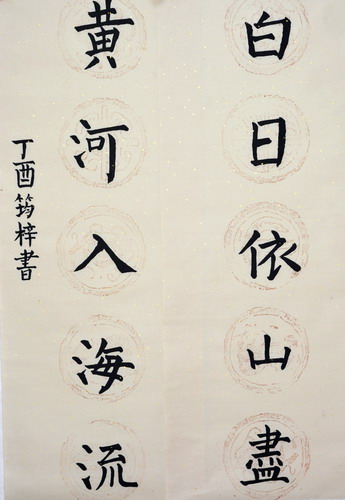 白日依山盡
黄河入海流
丁酉筠梓書